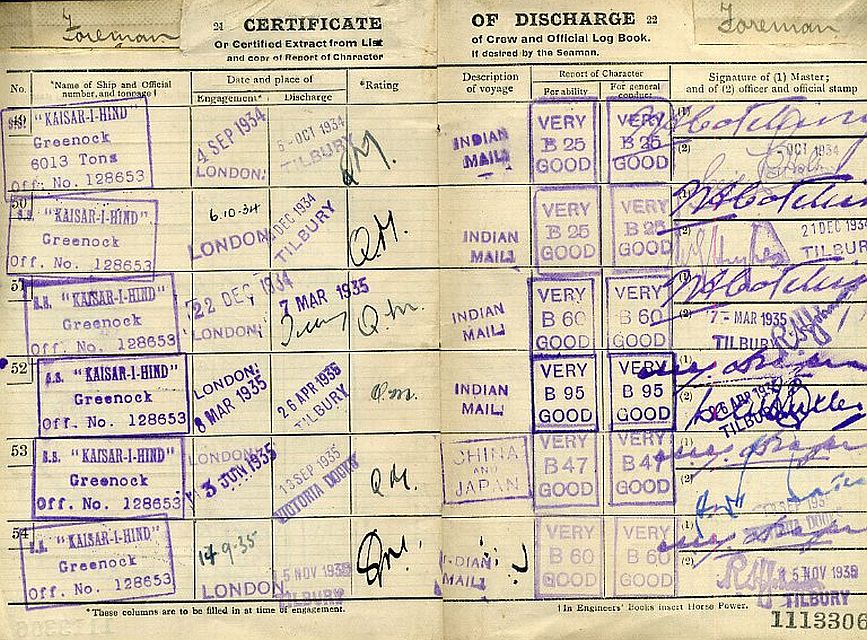 Foreman
21 CERTIFICATE
Or Certified Extract from List
and copy of Report of Character
OF DISCHARGE 22
of Crew and Official Log Book.
if desired by the Seaman.
Foreman
No.
*Name of Ship and Official number, and tonnage†
Date and place of
Engagement*
Discharge
*Rating
Description of voyage
Report of Character
For ability
For general conduct
Signature of (1) Master; and of (2) officer and official stamp
49
S.S. "KAISAR-I-HIND"
Greenock
6013 Tons
Off. No. 128653
4 SEP 1934
LONDON
5-OCT 1934
TILBURY
QM.
INDIAN
MAIL
VERY
B 25
GOOD
VERY
B 25
GOOD
(1)
(2)
OCT 1934
50
S.S. "KAISAR-I-HIND"
Greenock
Off. No. 128653
6.10.34
LONDON
21 DEC 1934
TILBURY
QM.
INDIAN
MAIL
VERY
B 25
GOOD
VERY
B 25
GOOD
(1)
(2)
21 DEC 1934
TILBURY
51
S.S. "KAISAR-I-HIND"
Greenock
Off. No. 128653
22 DEC 1934
LONDON
7 MAR 1935
Q.M.
INDIAN
MAIL
VERY
B 60
GOOD
VERY
B 60
GOOD
(1)
(2)
7-MAR 1935
TILBURY
52
S.S. "KAISAR-I-HIND"
Greenock
Off. No. 128653
LONDON
8 MAR 1935
26 APR 1935
TILBURY
Q.M.
INDIAN
MAIL
VERY
B 95
GOOD
VERY
B 95
GOOD
(1)
(2)
26 APR 1935
TILBURY
53
S.S. "KAISAR-I-HIND"
Greenock
Off. No. 128653
LONDON
3 JUN 1935
13 SEP 1935
VICTORIA DOCKS
QM.
CHINA
AND
JAPAN
VERY
B 47
GOOD
VERY
B 47
GOOD
(1)
(2)
54
S.S. "KAISAR-I-HIND"
Greenock
Off. No. 128653
14-9-35
LONDON
15 NOV 1935
TILBURY
Qm.
INDIAN
MAIL
VERY
B 60
GOOD
VERY
B 60
GOOD
(1)
(2)
15 NOV 1935
TILBURY
*These columns are to be filled in at time of engagement.
†In Engineers' Books insert Horse Power.